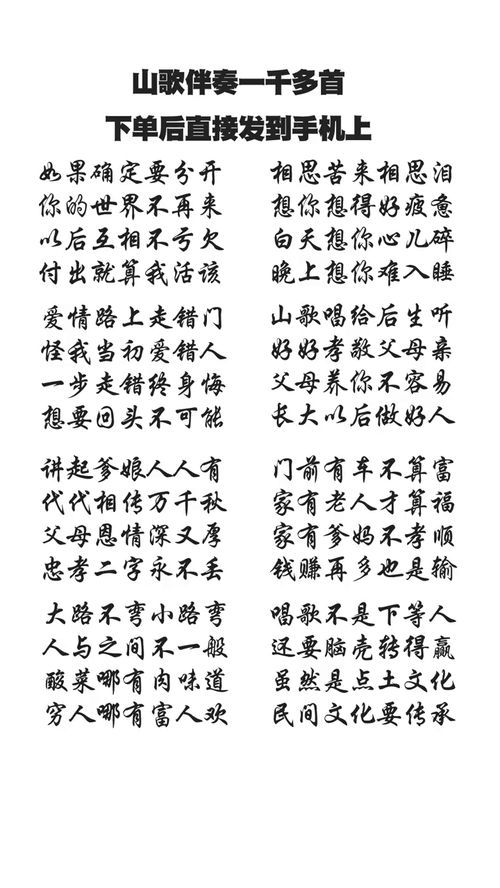 山歌伴奏一千多首
下单后直接发到手机上
如果确定要分开
你的世界不再来
以后互相不亏欠
付出就算我活该
爱情路上走错门
怪我当初爱错人
一步走错终身悔
想要回头不可能
讲起爹娘人人有
代代相传万千秋
父母恩情深又厚
忠孝二字永不丢
大路不弯小路弯
人与之间不一般
酸菜哪有肉味道
穷人哪有富人欢
相思苦来相思泪
想你想得好疲惫
白天想你心儿碎
晚上想你难入睡
山歌唱给后生听
好好孝敬父母亲
父母养你不容易
长大以后做好人
门前有车不算富
家有老人才算福
家有爹妈不孝顺
钱赚再多也是输
唱歌不是下等人
还要脑壳转得赢
虽然是点土文化
民间文化要传承